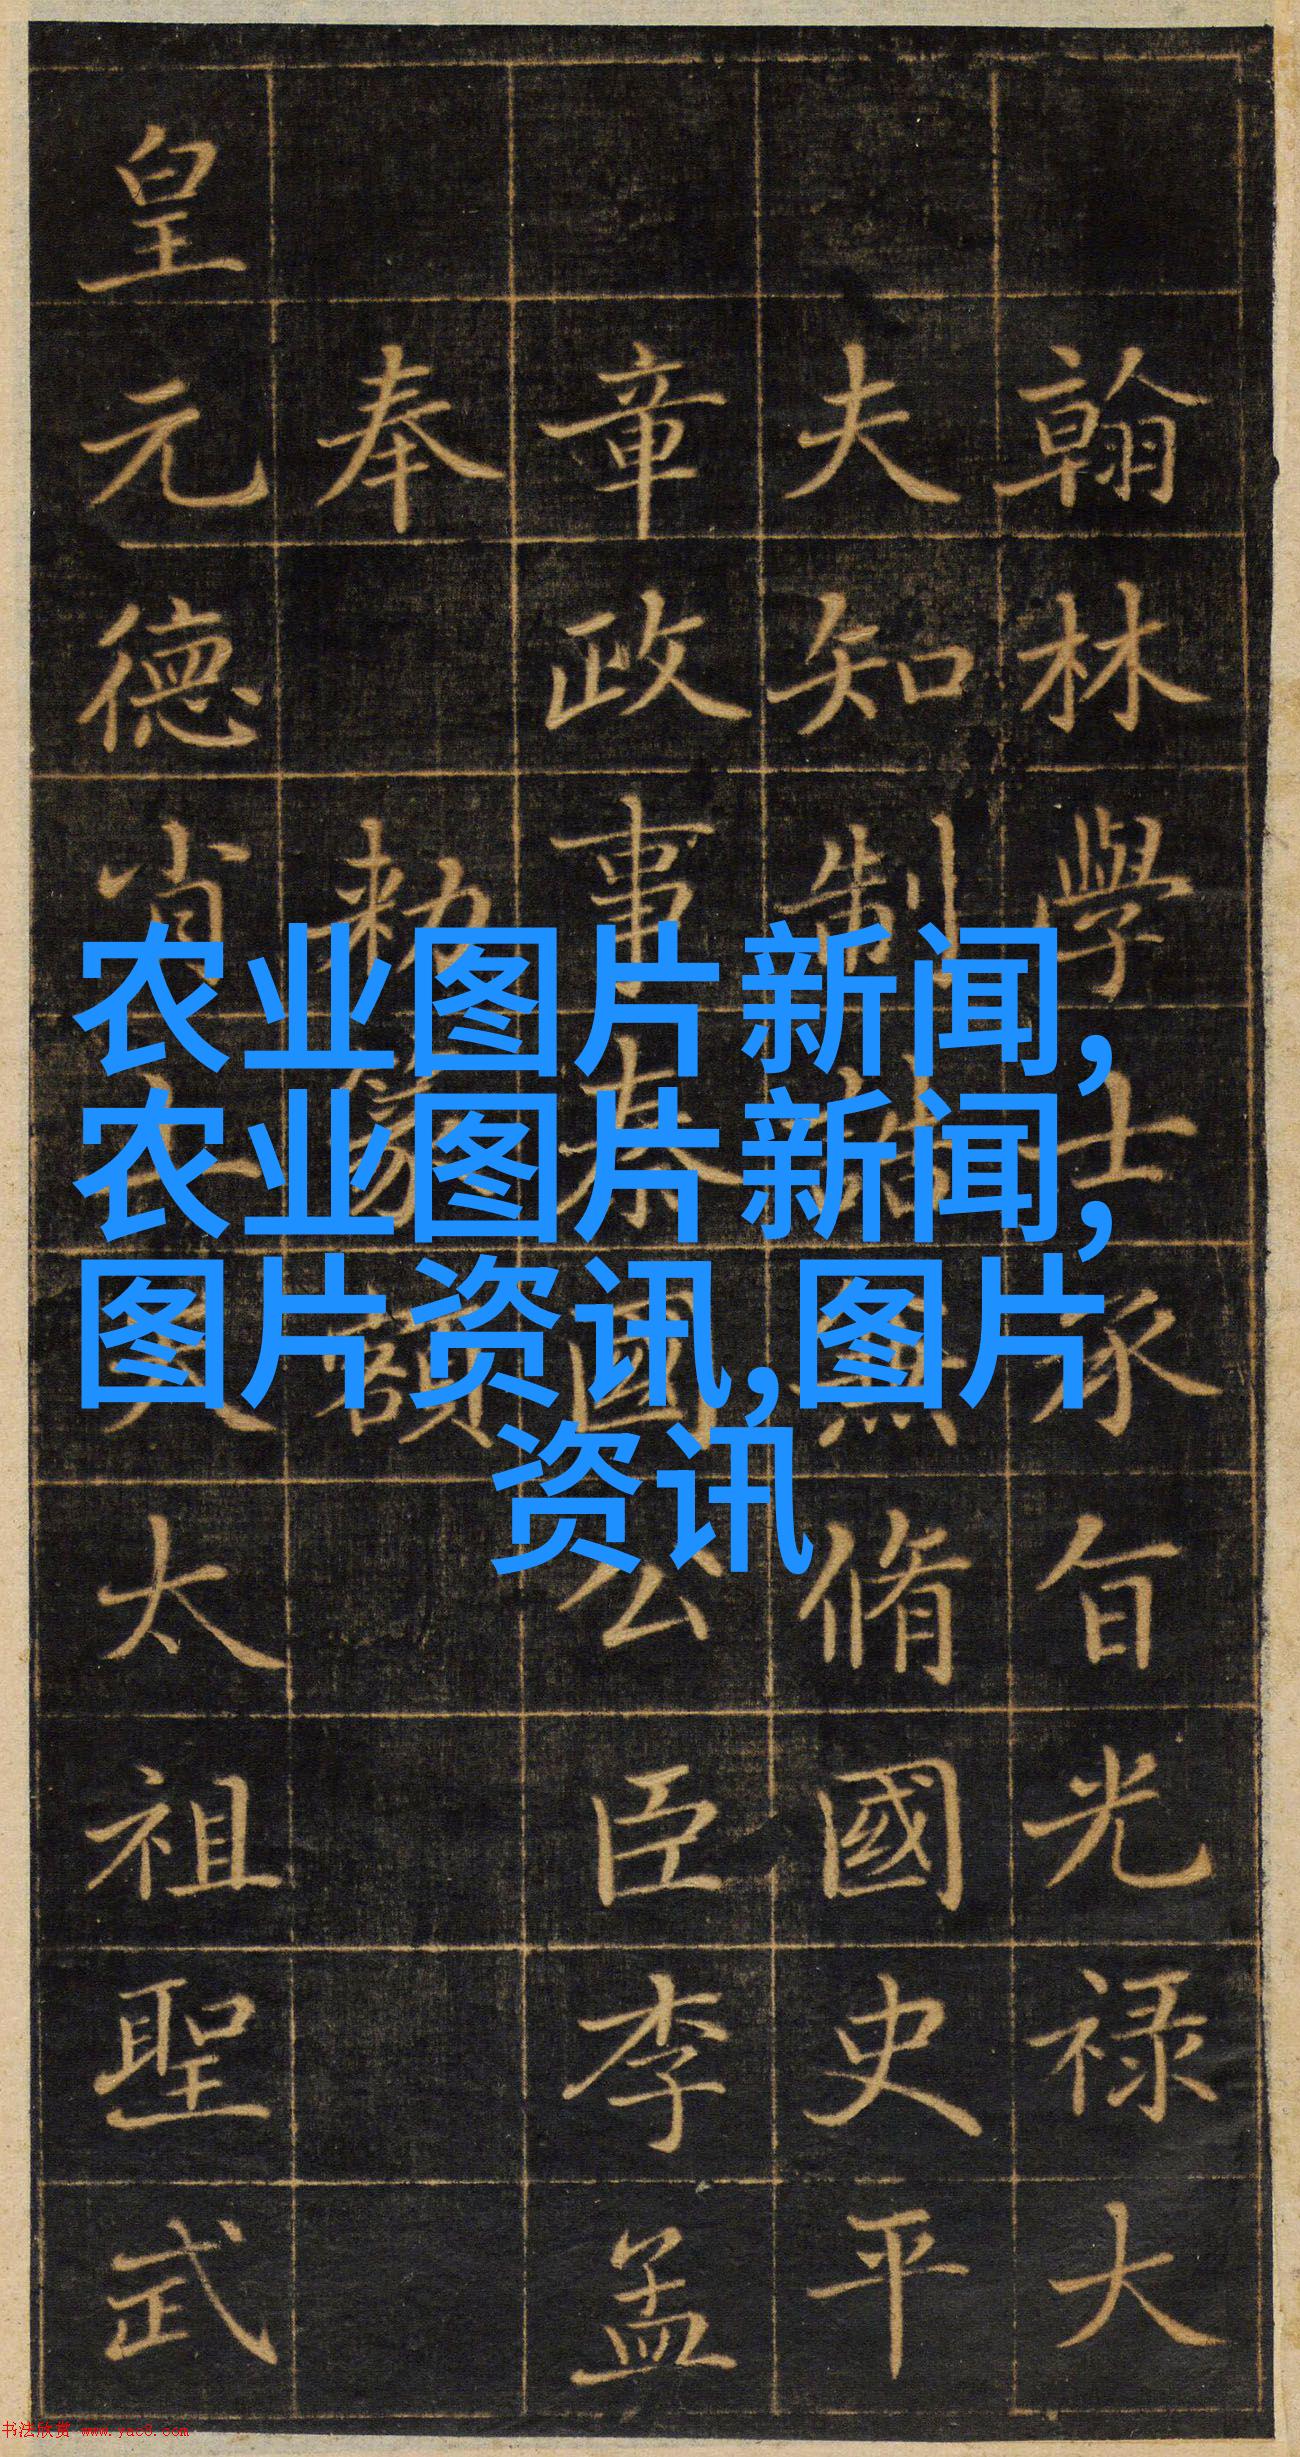 农业图片新闻,
农业图片新闻,
图片资讯,图片
资讯
翰林學士承旨光禄大
夫知制誥兼脩國史平
章政事秦國公臣李孟
奉 勅篆額
皇元德肖太祖聖武
书法欣赏 www.yac8.com